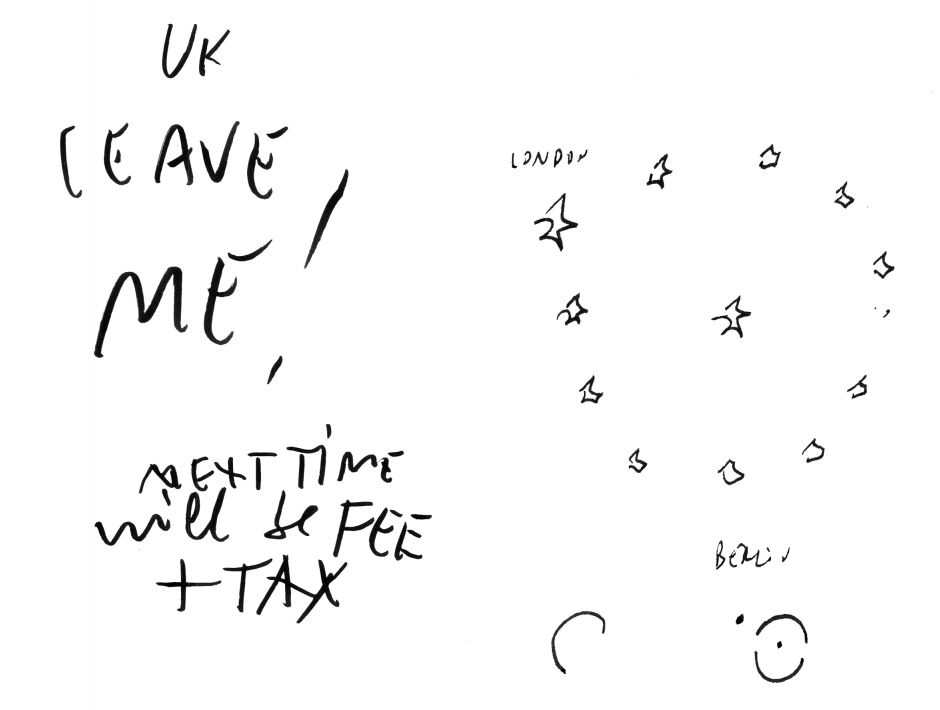 UK
LEAVE
ME!
NEXT TIME
will be FEE
+ TAX
LONDON
BERLIN